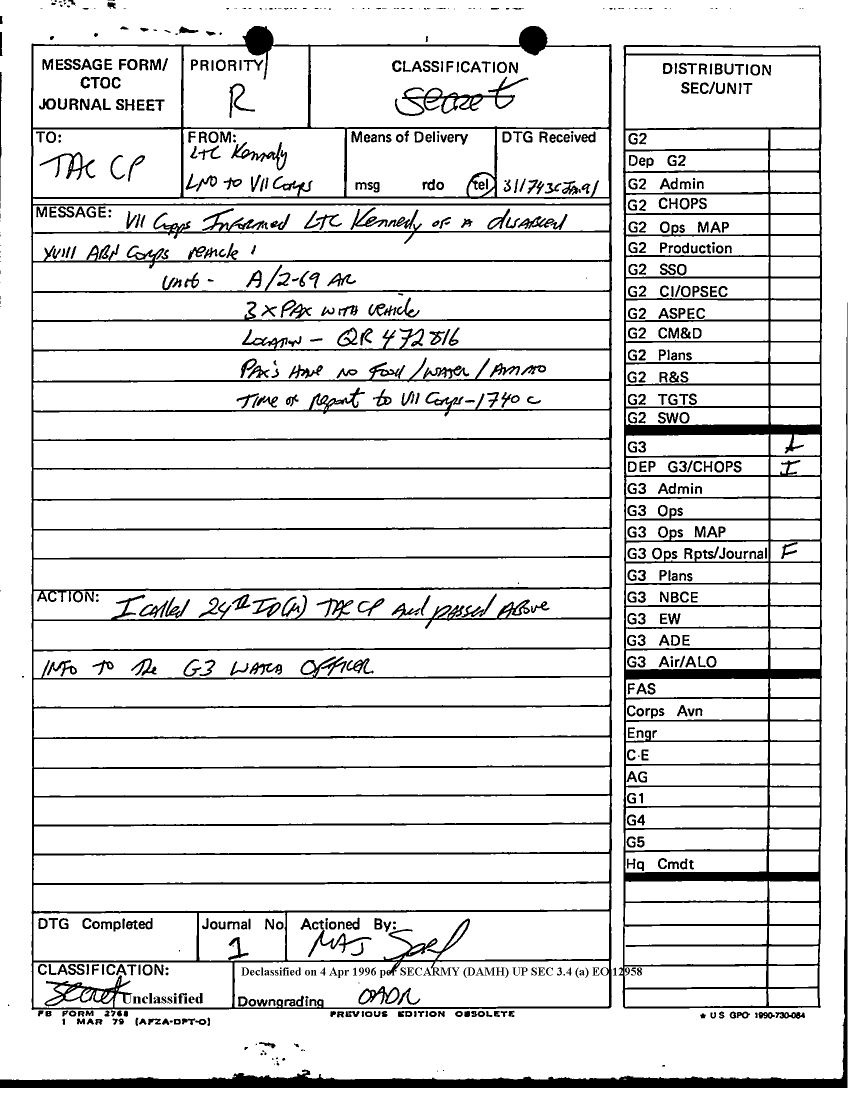 MESSAGE FORM/
CTOC
JOURNAL SHEET
PRIORITY
R
CLASSIFICATION
Secret
TO:
TAC CP
FROM:
LTC Kennedy
LNO to VII Corps
Means of Delivery
msg rdo tel
DTG Received
311743CJan91
MESSAGE: VII Corps Informed LTC Kennedy of a disabled
XVIII ABN Corps vehicle
Unit - A/2-69 AR
3 x PAX with vehicle
Location - QR 472816
PAX's Have no Food/water/Ammo
Time of report to VII Corps - 1740 C
ACTION: I called 24th ID(M) TAC CP and passed Above
INFO to the G3 Watch Officer
DTG Completed
Journal No.
1
Actioned By:
MAJ
CLASSIFICATION:
Secret Unclassified
Declassified on 4 Apr 1996 per SECARMY (DAMH) UP SEC 3.4 (a) EO 12958
Downgrading OADR
FB FORM 2768
1 MAR 79 (AFZA-DPT-O)
PREVIOUS EDITION OBSOLETE
DISTRIBUTION
SEC/UNIT
G2
Dep G2
G2 Admin
G2 CHOPS
G2 Ops MAP
G2 Production
G2 SSO
G2 CI/OPSEC
G2 ASPEC
G2 CM&D
G2 Plans
G2 R&S
G2 TGTS
G2 SWO
G3
DEP G3/CHOPS I
G3 Admin
G3 Ops
G3 Ops MAP
G3 Ops Rpts/Journal F
G3 Plans
G3 NBCE
G3 EW
G3 ADE
G3 Air/ALO
FAS
Corps Avn
Engr
C-E
AG
G1
G4
G5
Hq Cmdt
★ U S GPO 1990-730-084